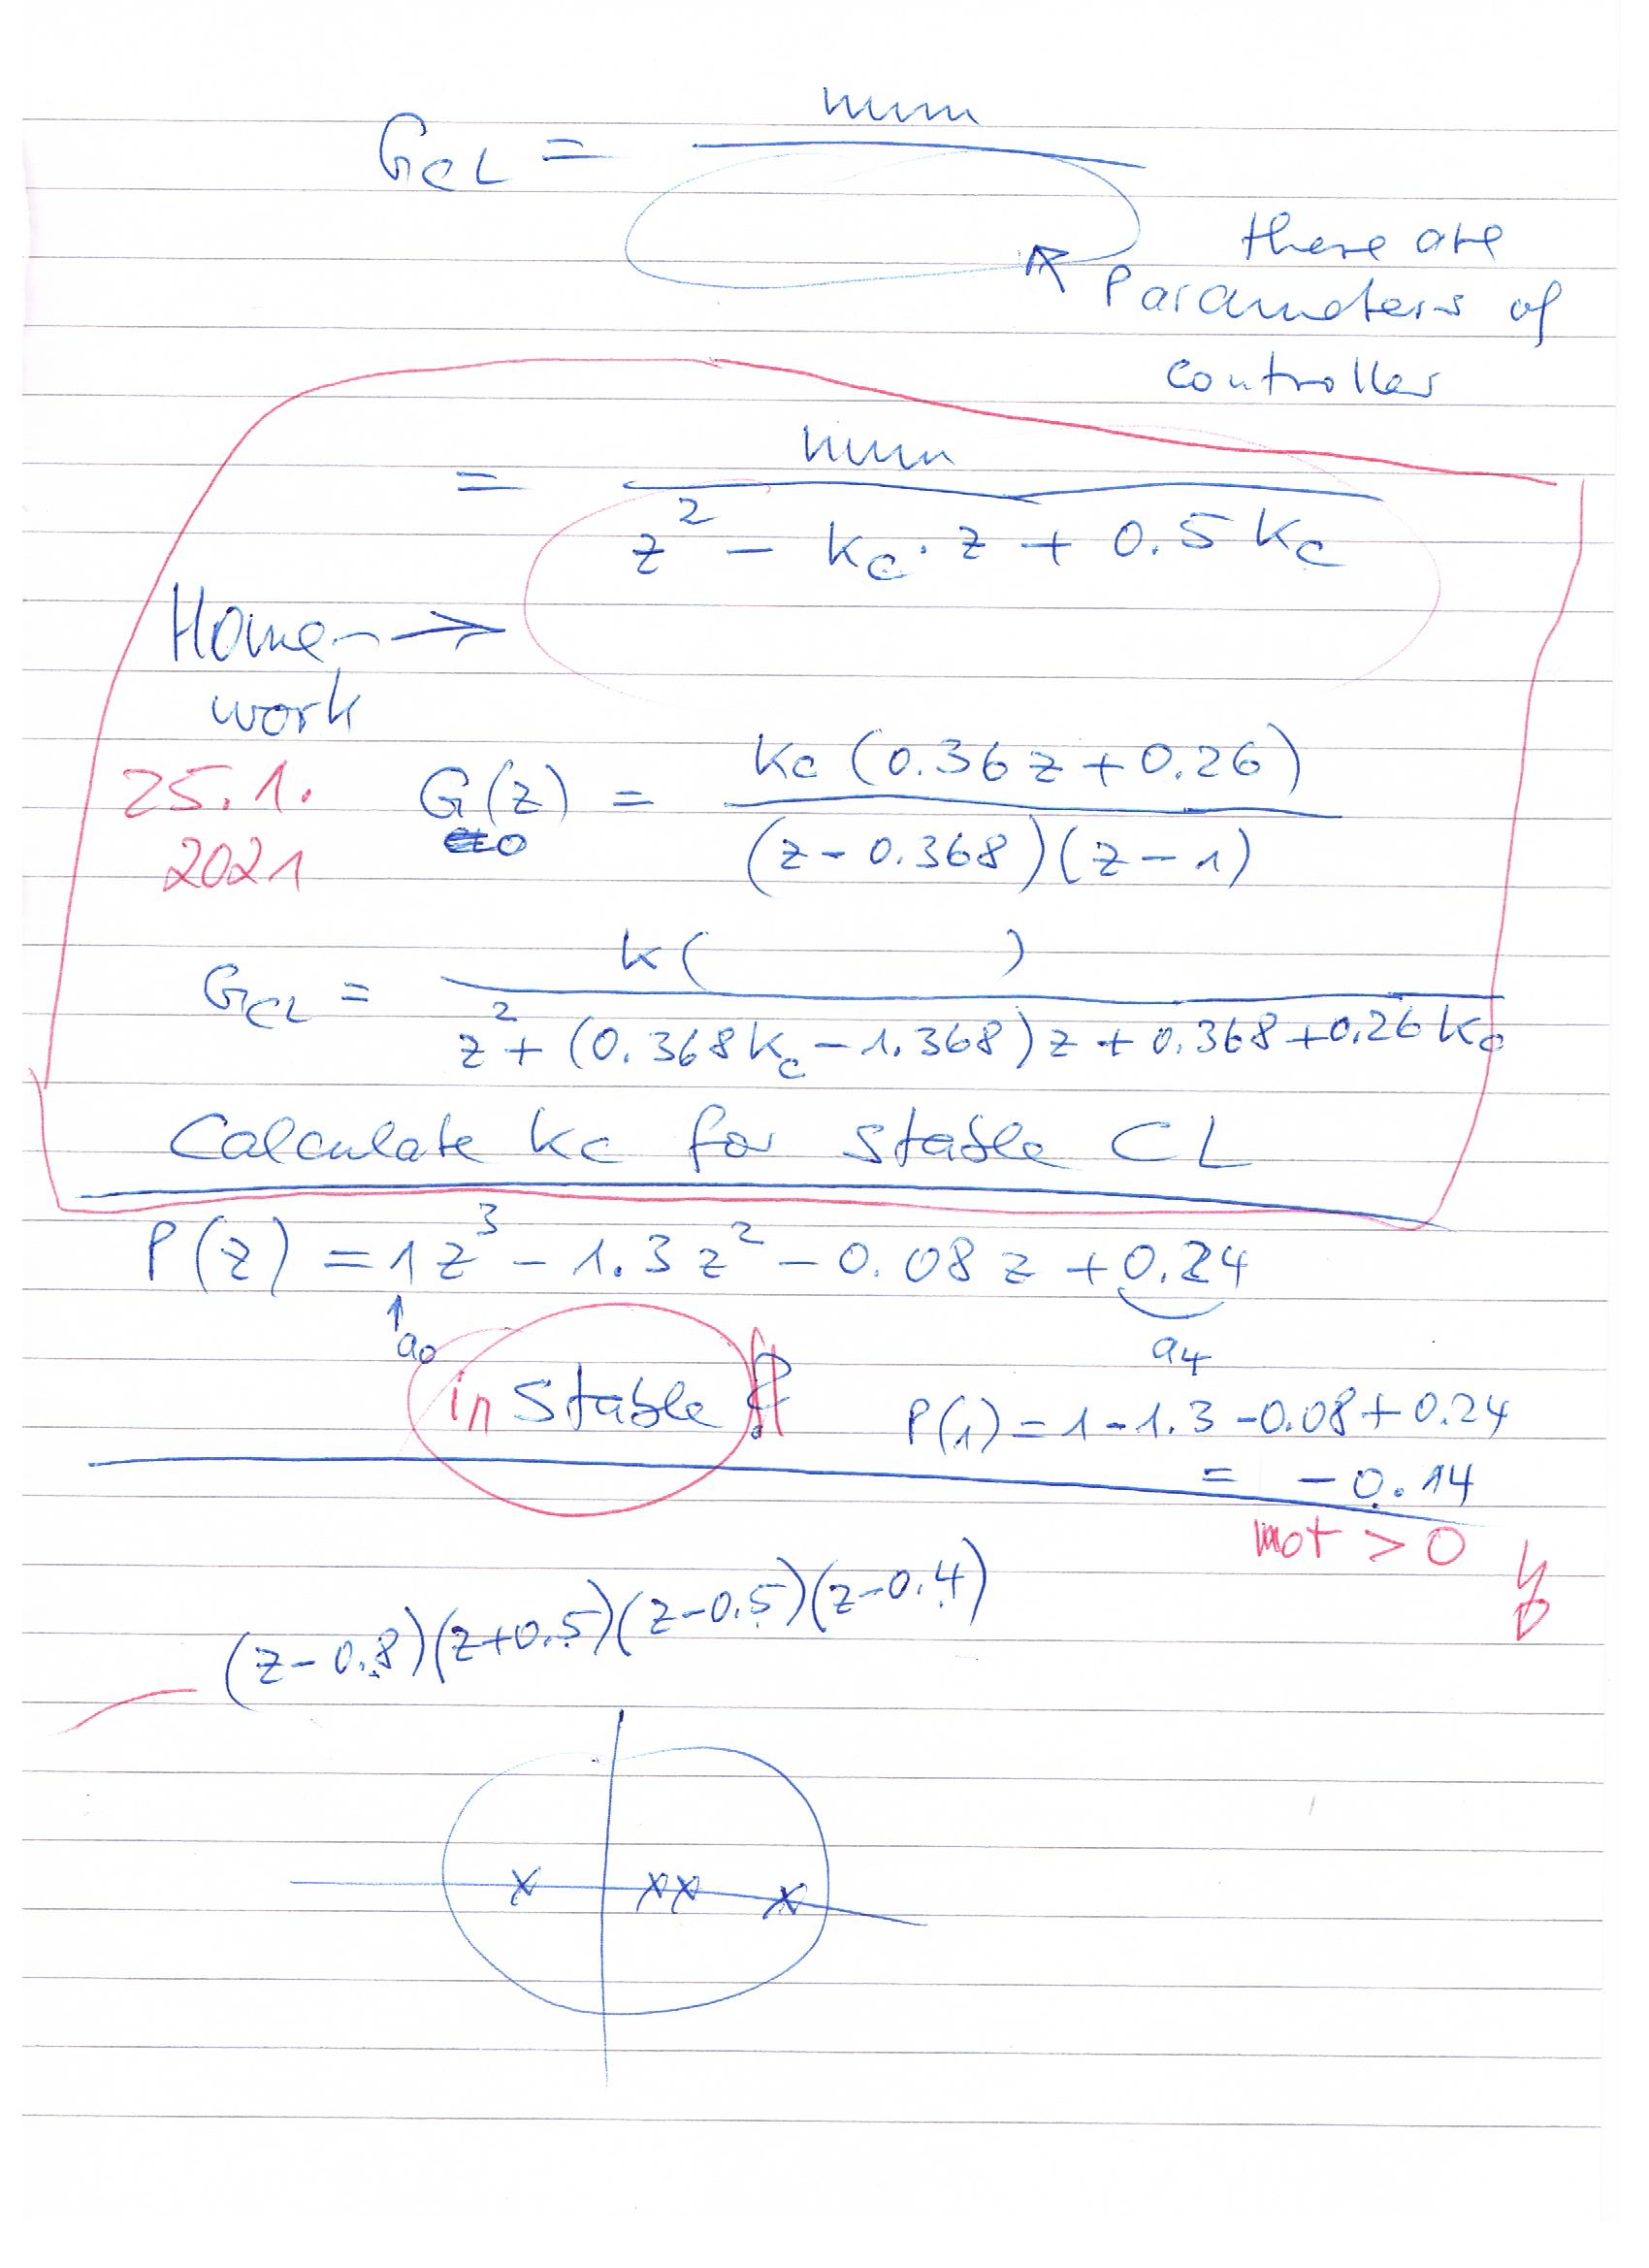 num
G_CL = ―――
there are
Parameters of
controller
num
= ―――
z² - k_c · z + 0.5 k_c
Home- →
work
25.1.
2021
k_c (0.36 z + 0.26)
G_0(z) = ―――
(z - 0.368)(z - 1)
k( )
G_CL = ―――
z² + (0.368 k_c - 1.368) z + 0.368 + 0.26 k_c
Calculate k_c for stable CL
P(z) = 1 z³ - 1.3 z² - 0.08 z + 0.24
↑ a_0
a_4
in stable ?!
P(1) = 1 - 1.3 - 0.08 + 0.24
= - 0.14
not > 0
(z - 0.8)(z + 0.5)(z - 0.5)(z - 0.4)
x xx x